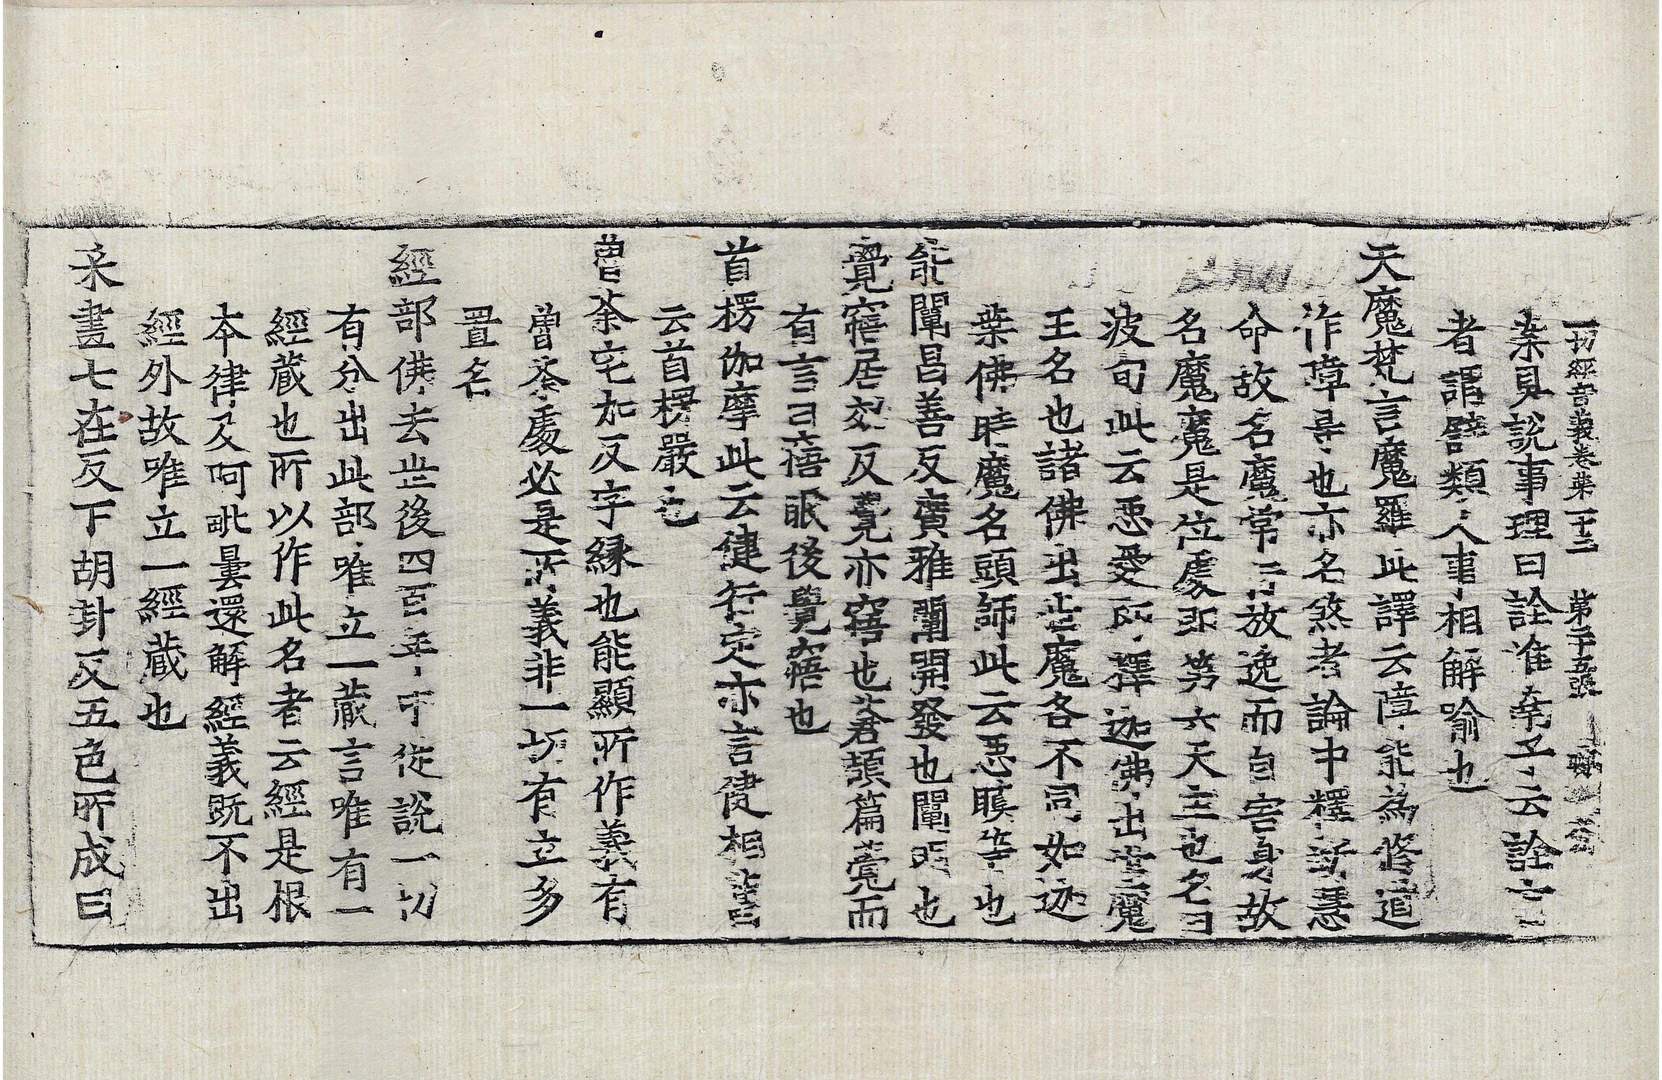 一切經音義卷第二十三　第二十五張
案見說事理曰詮淮南子云詮言
者謂譬類人事相解喻也
天魔梵言魔羅此譯云障能為修道
作障㝵也亦名煞者論中釋断慧
命故名魔常行放逸而自害身故
名魔魔是位處即第六天主也名曰
波旬此云恶愛即釋迦佛出世魔
王名也諸佛出世魔各不同如迦
葉佛時魔名頭師此云恶瞋等也
能闡昌善反廣雅闡開發也闡明也
覺寤居效反覺亦寤也蒼頡篇覺而
有言曰寤眠後覺寤也
首楞伽摩此云健行定亦言健相舊
云首楞嚴也
曾荼宅加反字緣也能顯所作義有
曾荼處必是所義非一切有立多
置名
經部佛去世後四百年中從說一切
有分出此部唯立一藏言唯有一
經藏也所以作此名者云經是根
本律及呵毗曇還解經義既不出
經外故唯立一經藏也
采畫七在反下胡卦反五色所成曰